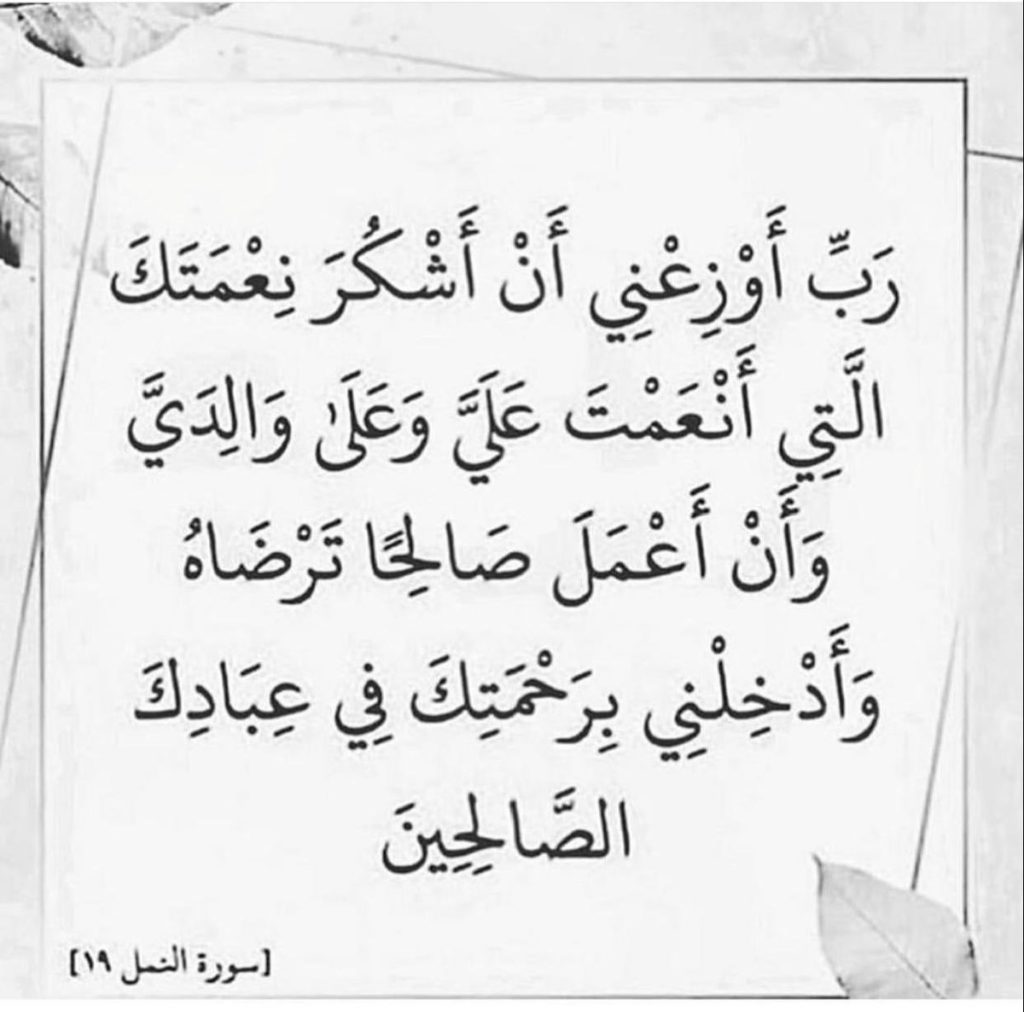 رَبِّ أَوْزِعْنِي أَنْ أَشْكُرَ نِعْمَتَكَ
الَّتِي أَنْعَمْتَ عَلَيَّ وَعَلَىٰ وَالِدَيَّ
وَأَنْ أَعْمَلَ صَالِحًا تَرْضَاهُ
وَأَدْخِلْنِي بِرَحْمَتِكَ فِي عِبَادِكَ
الصَّالِحِينَ
[سورة النمل ١٩]